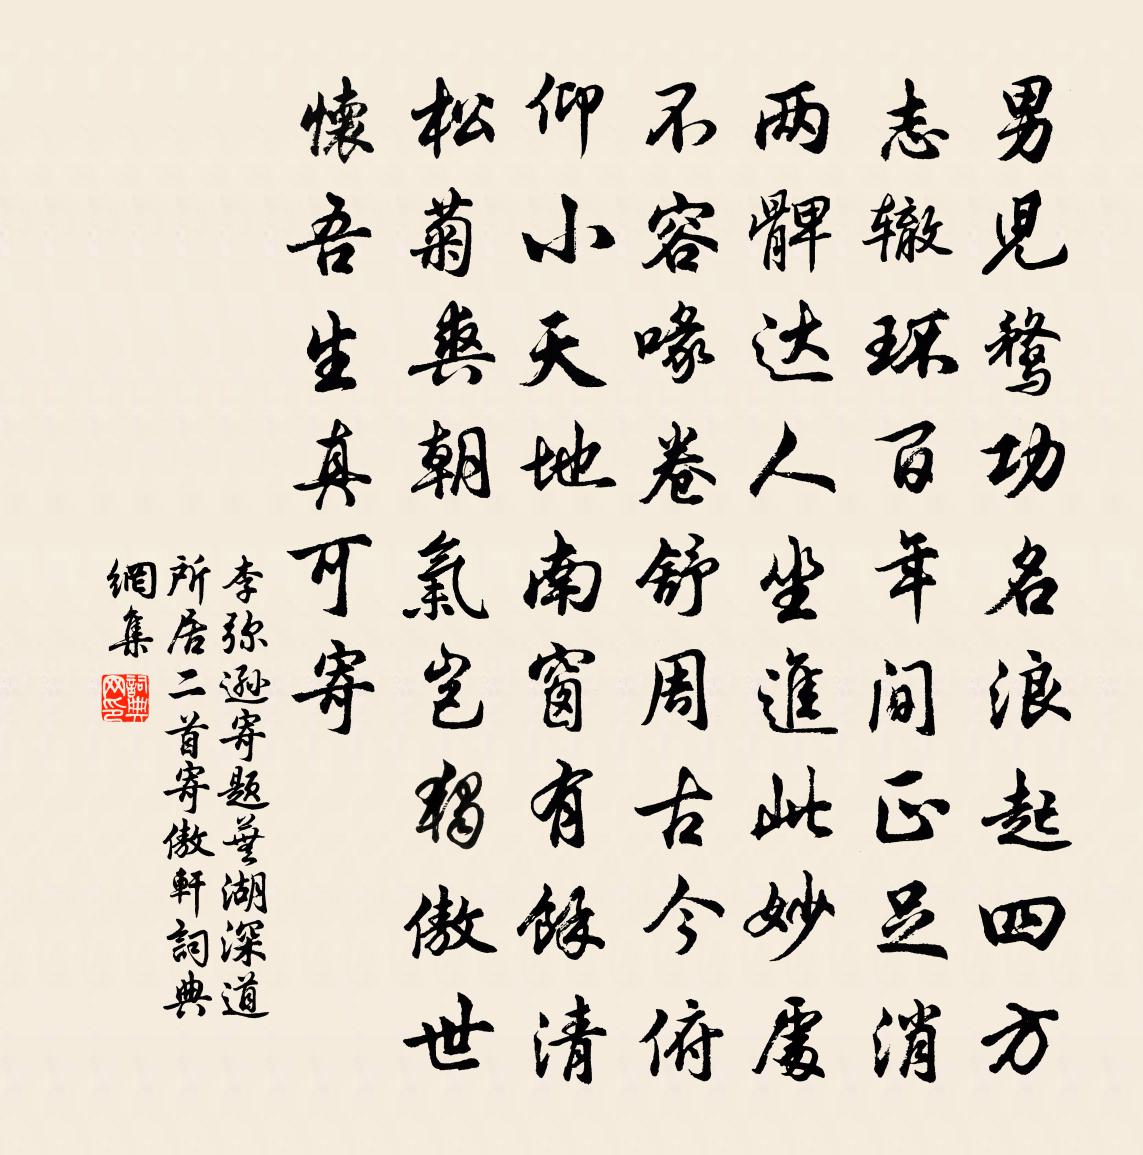 男児騖功名浪起四方
志辙环百年间正足消
两髀达人坐進此妙處
不容喙卷舒周古今俯
仰小天地南窗有餘清
松菊爽朝氣豈獨傲世
懷吾生真可寄
李弥遜寄题蕪湖深道
所居二首寄傲軒詞典
網集
詞典网印